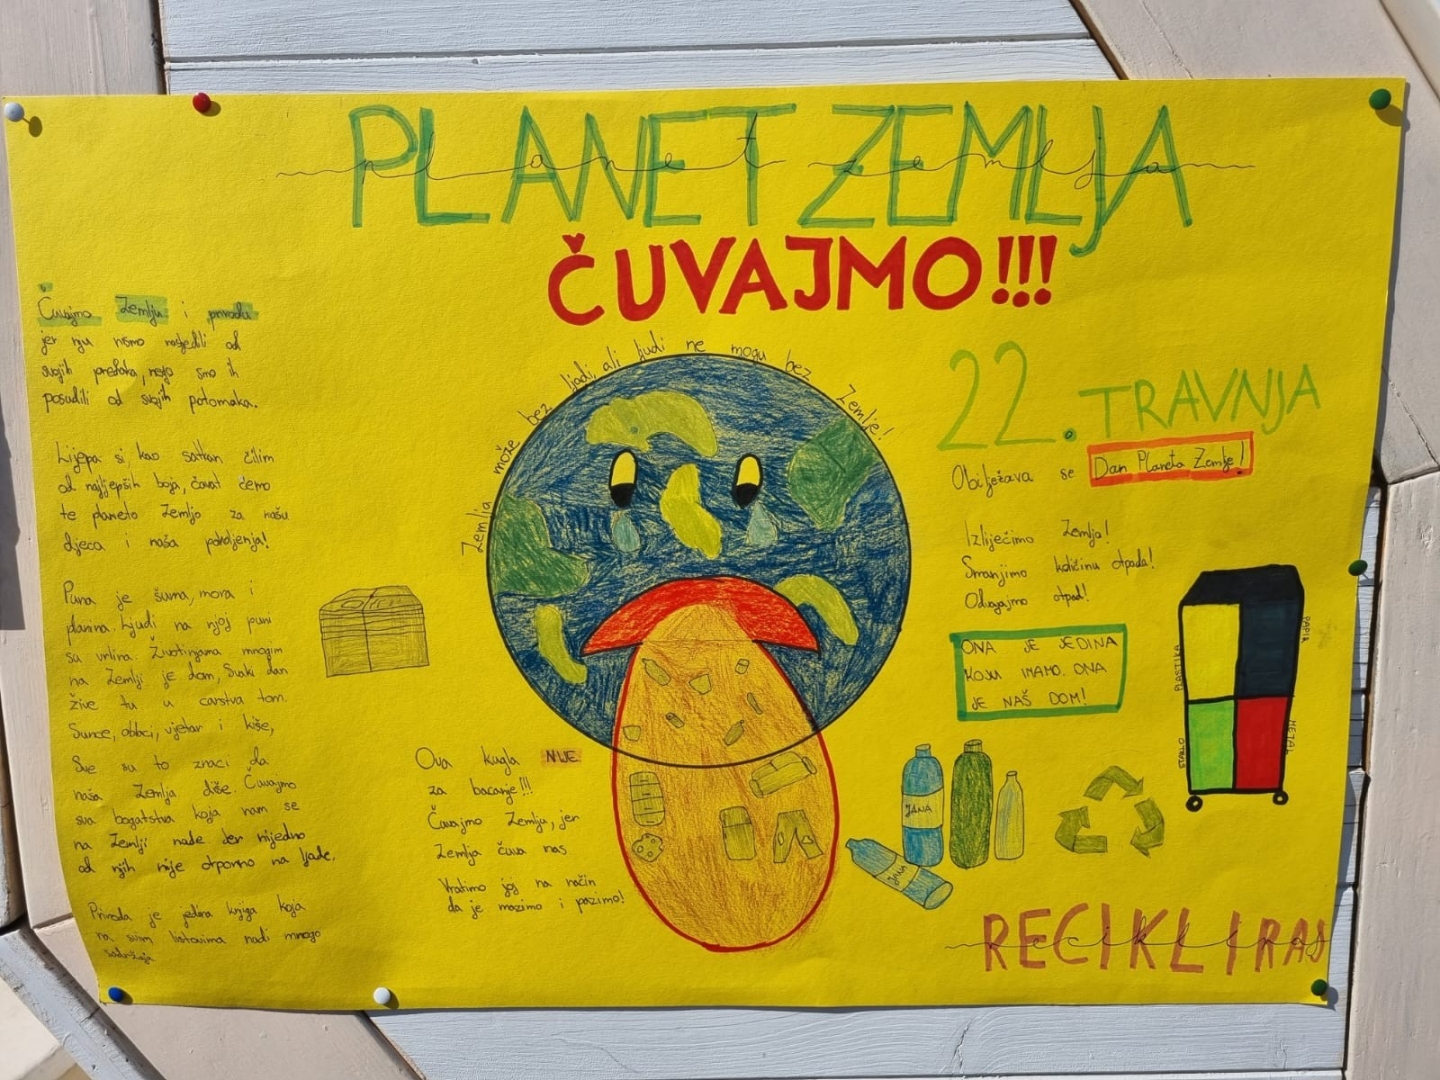 PLANET ZEMLJA
planet zemlja
ČUVAJMO!!!
Čuvajmo Zemlju i prirodu
jer nju nismo naslijedili od
svojih predaka, nego smo ih
posudili od svojih potomaka.
Lijepa si kao satkan ćilim
od najljepših boja, čuvat ćemo
te planeto Zemljo za našu
djecu i naša pokoljenja!
Puna je šuma, mora i
planina. Ljudi na njoj puni
su vrlina. Životinjama mnogim
na Zemlji je dom, Svaki dan
žive tu u carstvu tom.
Sunce, oblaci, vjetar i kiše,
Sve su to znaci da
naša Zemlja diše. Čuvajmo
sva bogatstva koja nam se
na Zemlji nude Jer nijedno
od njih nije otporno na ljude.
Priroda je jedina knjiga koja
na svim listovima nudi mnogo
sadržaja
Zemlja može bez ljudi, ali ljudi ne mogu bez Zemlje!
Ova kugla NIJE
za bacanje!!!
Čuvajmo Zemlju, jer
Zemlja čuva nas
Vratimo joj na način
da je mazimo i pazimo!
22. TRAVNJA
Obilježava se Dan Planeta Zemlje!
Izliječimo Zemlju!
Smanjimo količinu otpada!
Odvajajmo otpad!
ONA JE JEDINA
KOJU IMAMO. ONA
JE NAŠ DOM!
PLASTIKA
PAPIR
STAKLO
METAL
JANA
Jana
RECIKLIRAJ
recikliraj